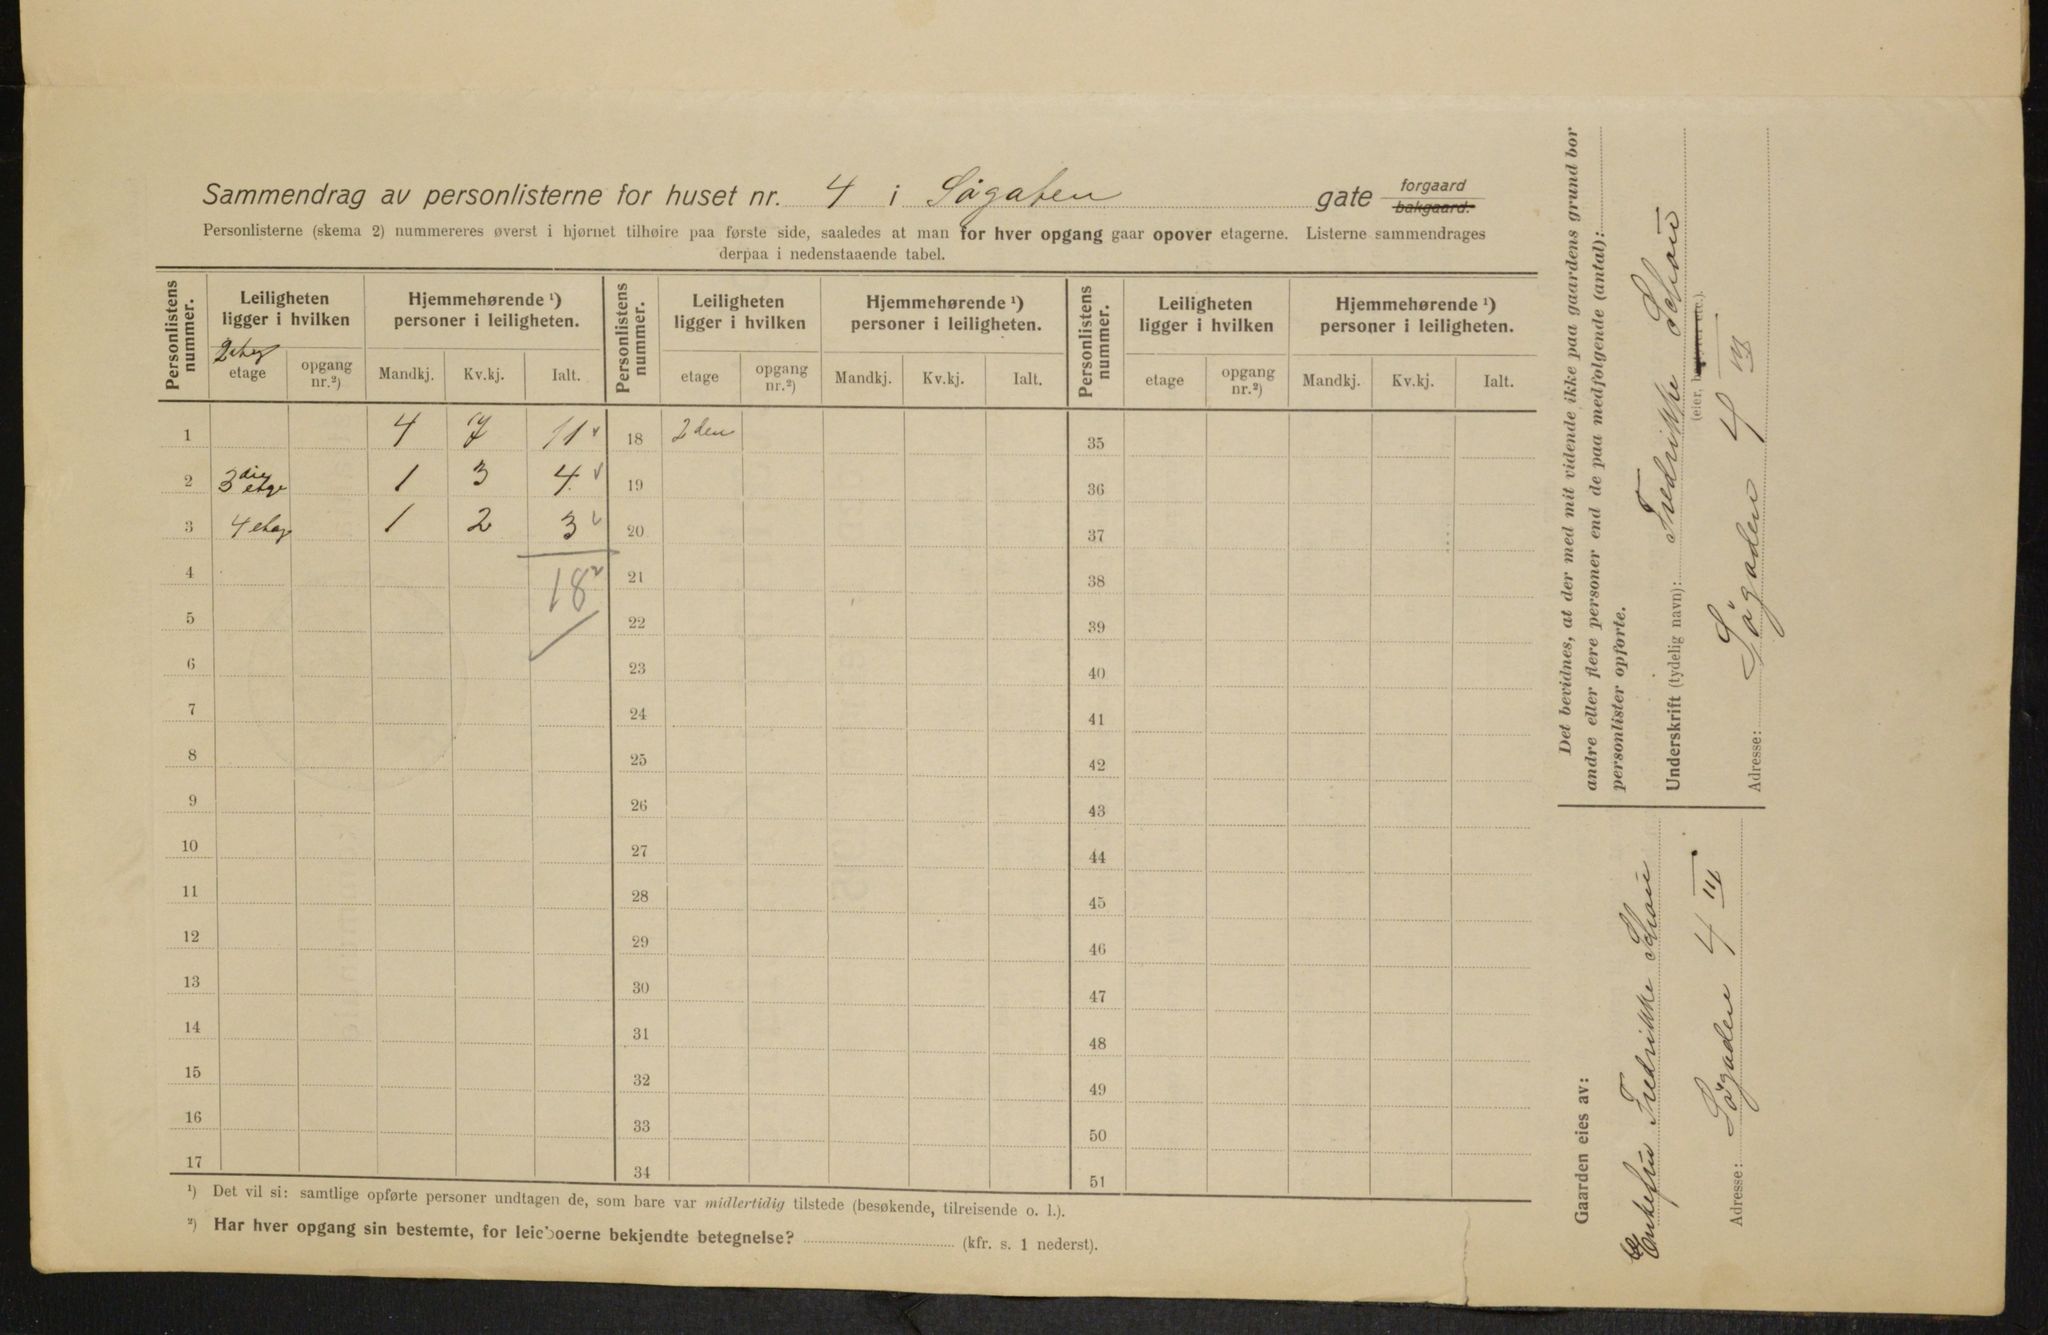 Sammendrag av personlisterne for huset nr. 4 i Søgaten gate forgaard bakgaard.
Personlisterne (skema 2) nummereres øverst i hjørnet tilhøire paa første side, saaledes at man for hver opgang gaar opover etagerne. Listerne sammendrages
derpaa i nedenstaaende tabel.
Personlistens nummer. Leiligheten ligger i hvilken Hjemmehørende ¹) personer i leiligheten. Personlistens nummer. Leiligheten ligger i hvilken Hjemmehørende ¹) personer i leiligheten. Personlistens nummer. Leiligheten ligger i hvilken Hjemmehørende ¹) personer i leiligheten.
2 etag
etage opgang nr.²) Mandkj. Kv.kj. Ialt. etage opgang nr.²) Mandkj. Kv.kj. Ialt. etage opgang nr.²) Mandkj. Kv.kj. Ialt.
1 4 7 11 18 2 den 35
2 3die etge 1 3 4 19 36
3 4 etag 1 2 3 20 37
4 18 21 38
5 22 39
6 23 40
7 24 41
8 25 42
9 26 43
10 27 44
11 28 45
12 29 46
13 30 47
14 31 48
15 32 49
16 33 50
17 34 51
¹) Det vil si: samtlige opførte personer undtagen de, som bare var midlertidig tilstede (besøkende, tilreisende o. l.).
²) Har hver opgang sin bestemte, for leieboerne bekjendte betegnelse? (kfr. s. 1 nederst).
Det bevidnes, at der med mit vidende ikke paa gaardens grund bor
andre eller flere personer end de paa medfølgende (antal):
personlister opførte.
Underskrift (tydelig navn): Fredrikke Schou
(eier, bestyrer etc.).
Adresse: Søgaden 4 III
Gaarden eies av:
Enkefru Fredrikke Schou
Adresse: Søgaden 4 III